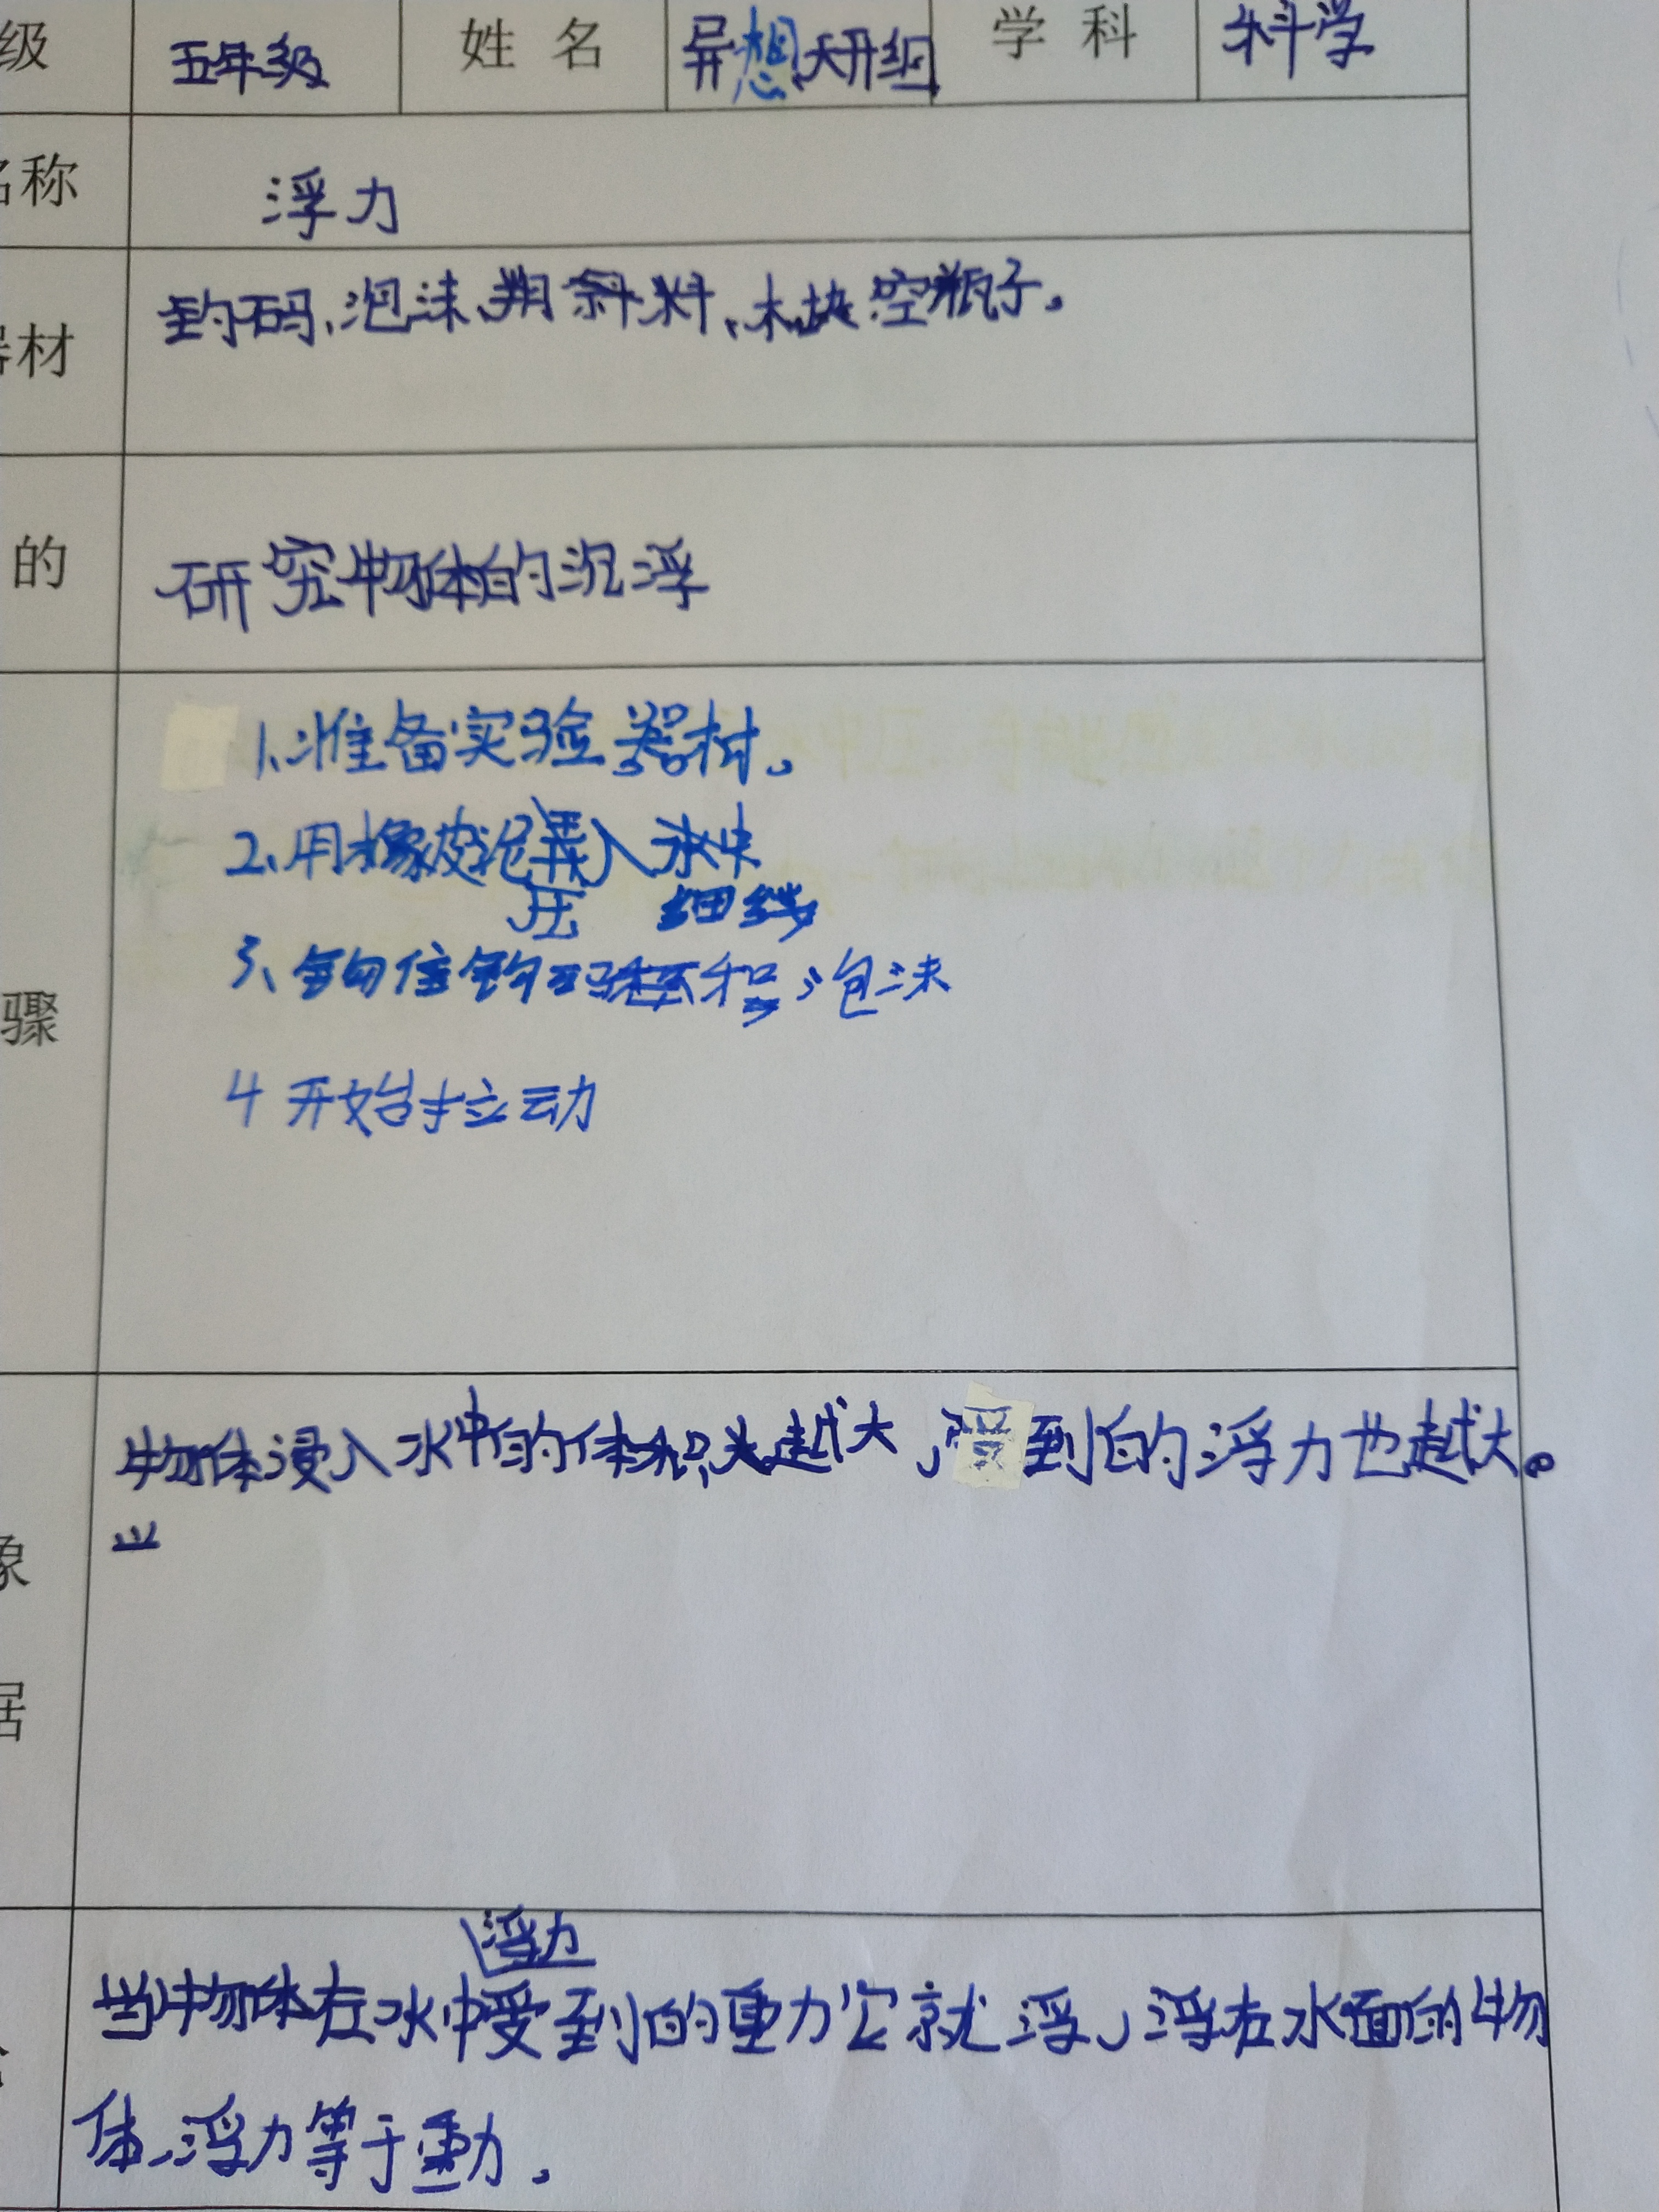 级 五年级 姓名 异想天开组 学科 科学
名称 浮力
器材 钩码、泡沫、塑料、木块 空瓶子。
的 研究物体的沉浮
1、准备实验器材。
2、用橡皮泥 入
压 细线
骤 3、钩住钩码 和 泡沫
4 开始拉动
物体浸入水中的体积越大,受到的浮力也越大。
象
据
浮力
当物体在水中受到的重力它就浮,浮在水面的物
体,浮力等于重力。